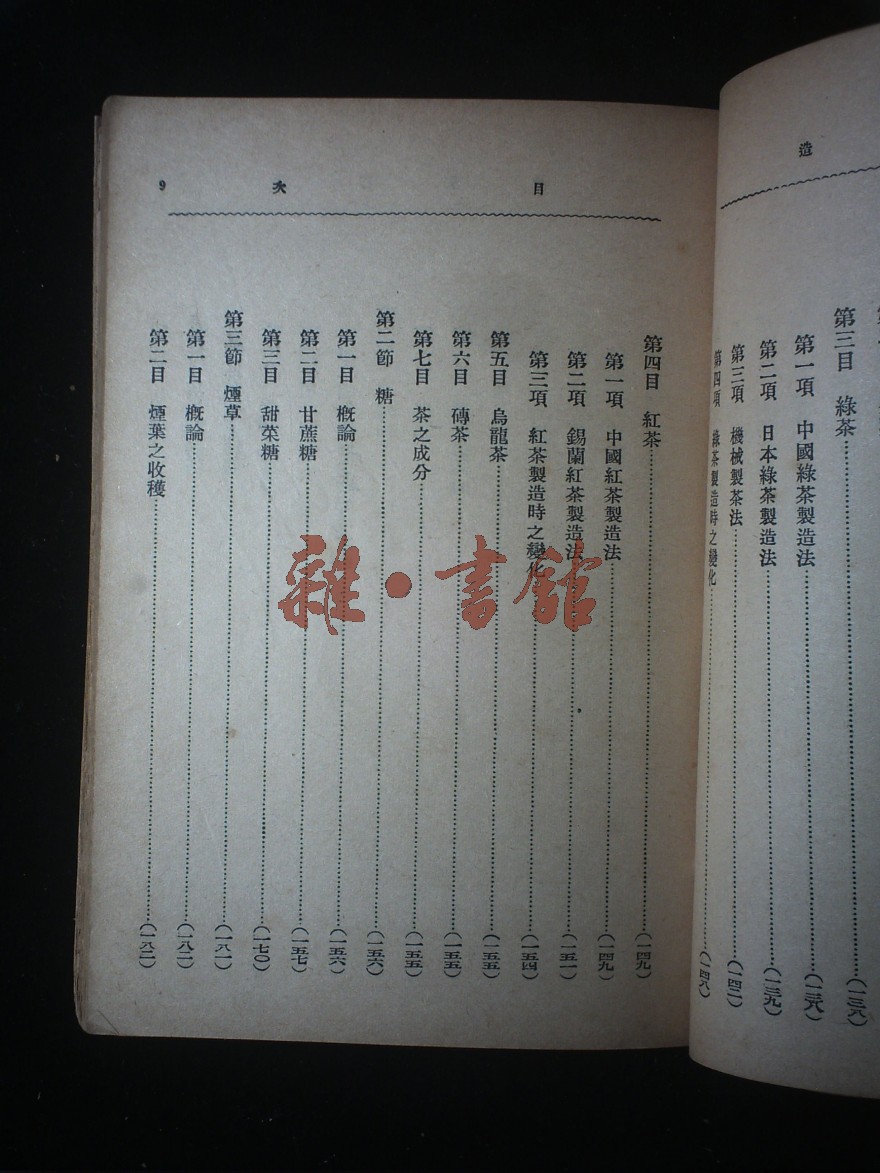 造
第三目　綠茶……(一三八)
第一項　中國綠茶製造法……(一三八)
第二項　日本綠茶製造法……(一三九)
第三項　機械製茶法……(一四二)
第四項　綠茶製造時之變化……(一四八)
目　次　9
第四目　紅茶……(一四九)
第一項　中國紅茶製造法……(一四九)
第二項　錫蘭紅茶製造法……(一五一)
第三項　紅茶製造時之變化……(一五四)
第五目　烏龍茶……(一五五)
第六目　磚茶……(一五五)
第七目　茶之成分……(一五五)
第二節　糖……(一五六)
第一目　概論……(一五六)
第二目　甘蔗糖……(一五七)
第三目　甜菜糖……(一七〇)
第三節　煙草……(一八一)
第一目　概論……(一八二)
第二目　煙葉之收穫……(一八二)
雜·書館